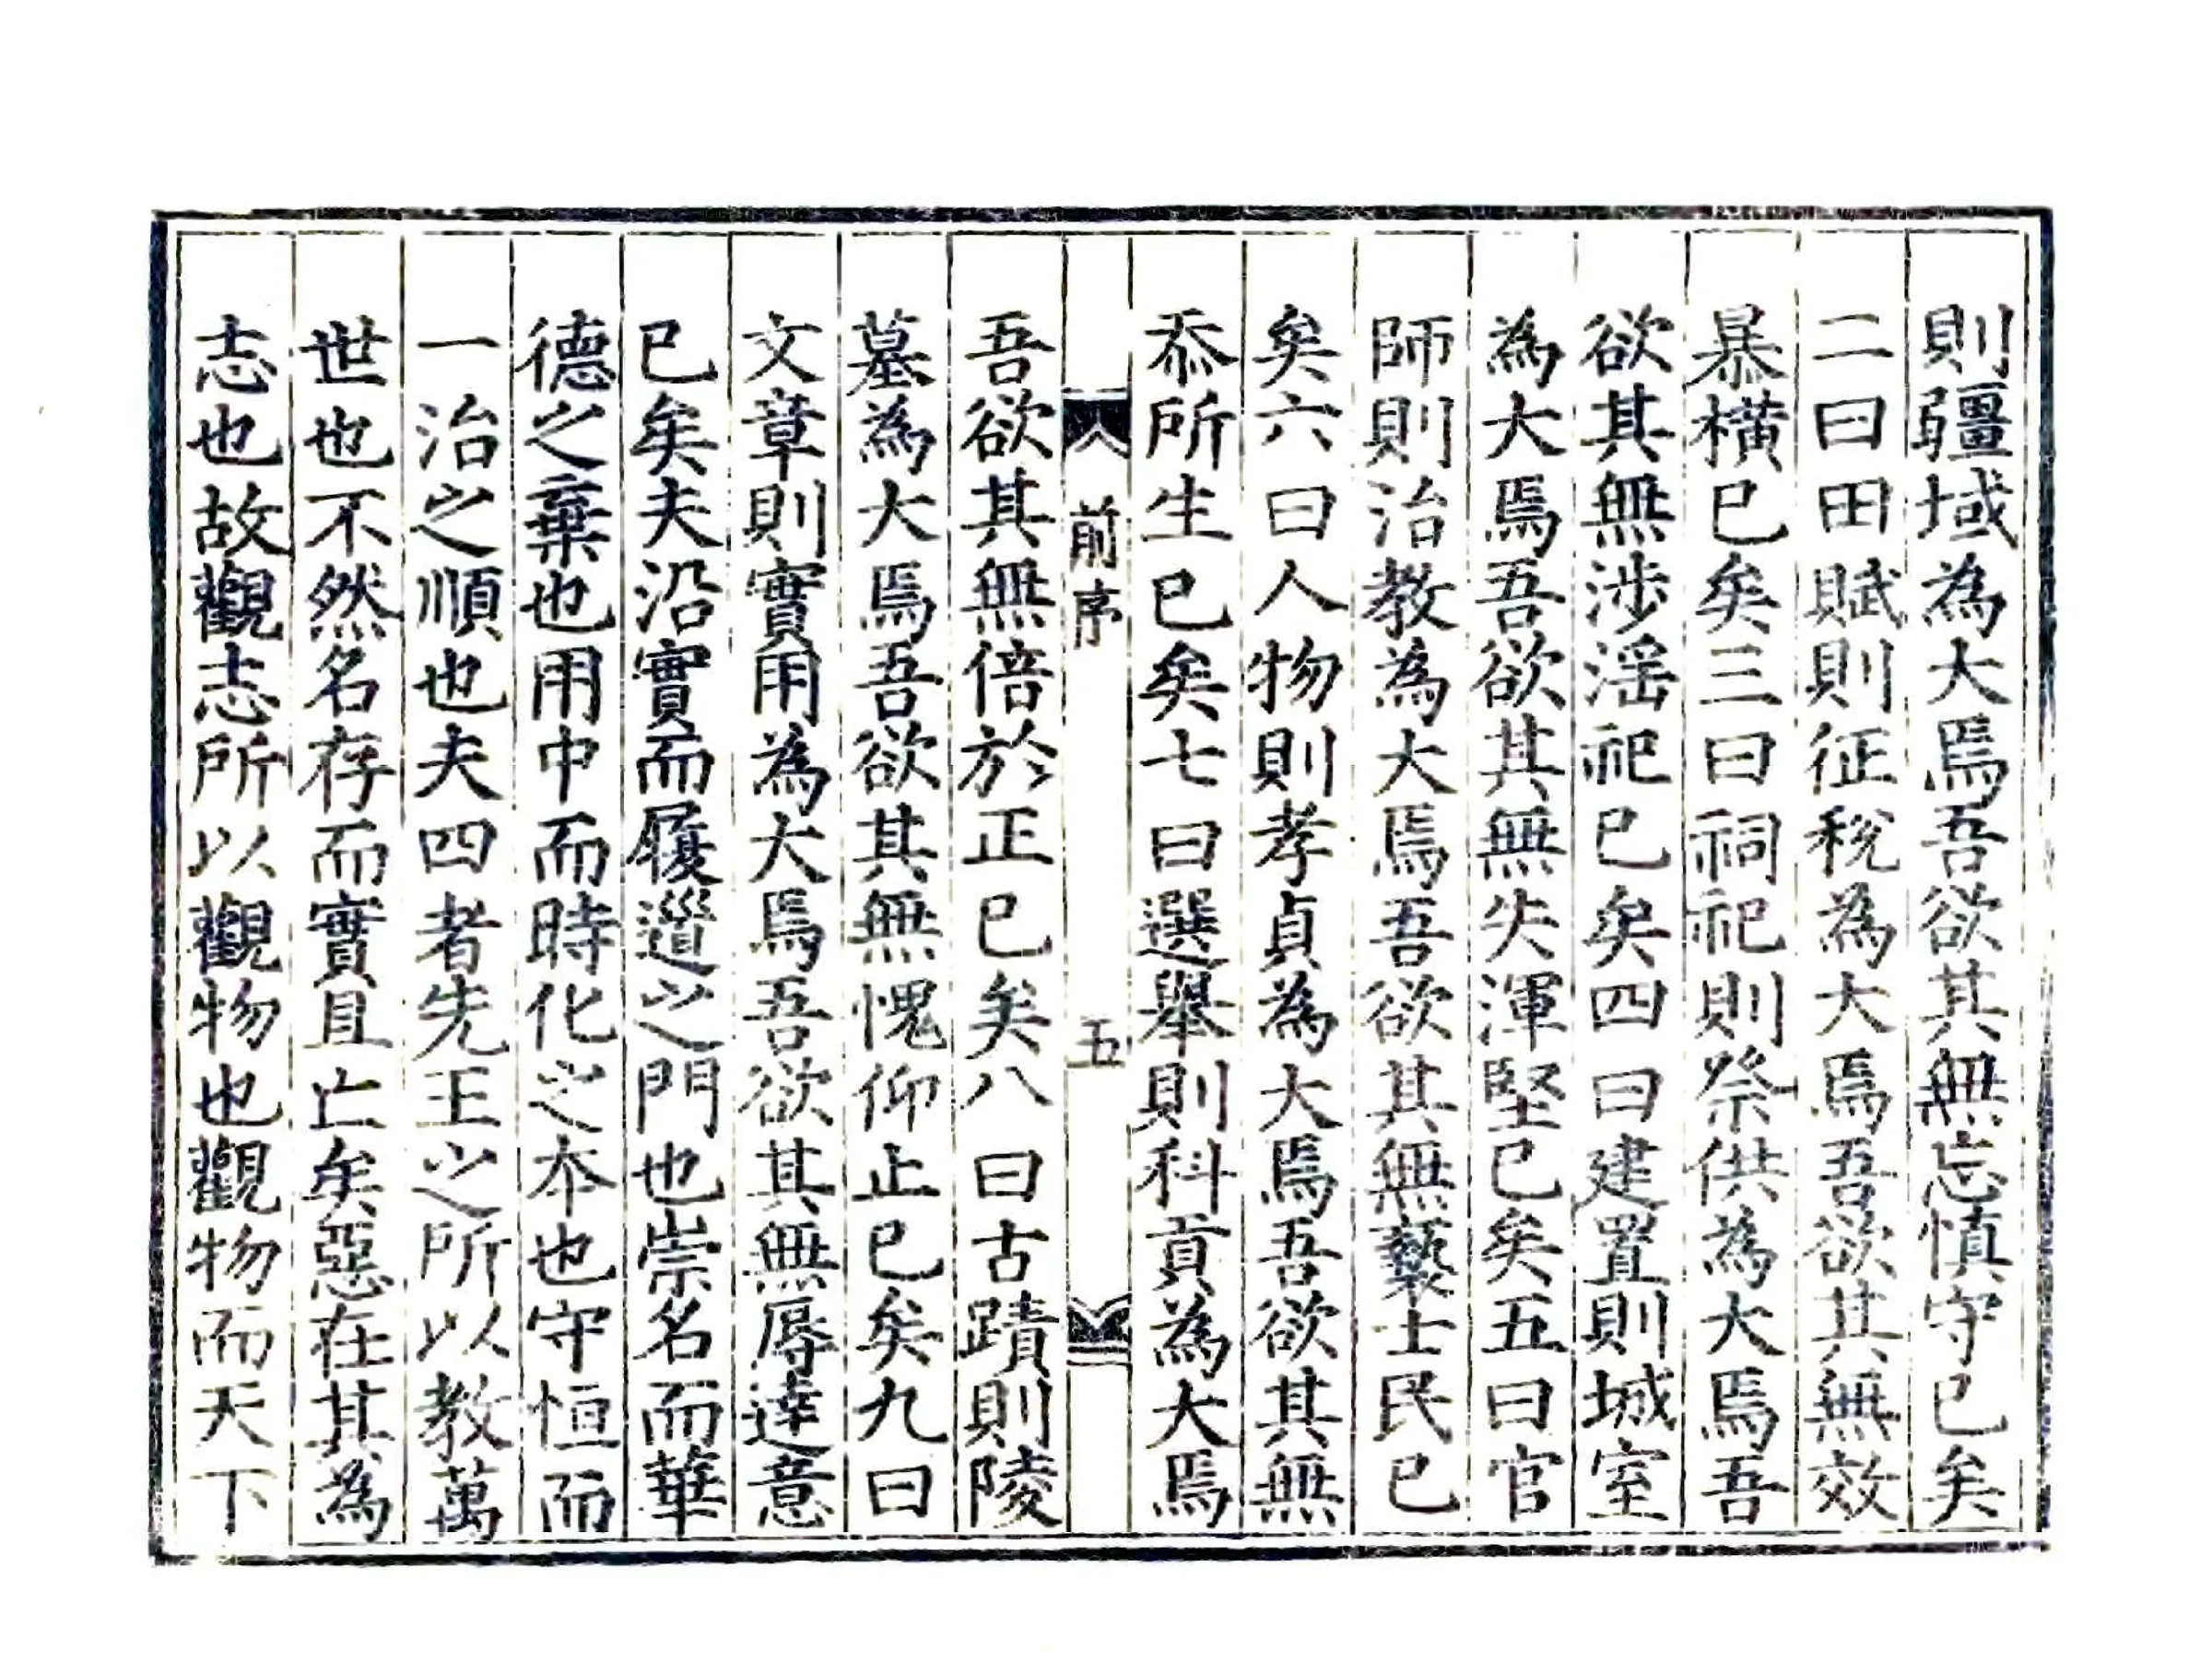 則疆域為大焉吾欲其無忘慎守已矣
二曰田賦則征稅為大焉吾欲其無效
暴橫已矣三曰祠祀則祭供為大焉吾
欲其無涉滛祀已矣四曰建置則城室
為大焉吾欲其無失渾堅已矣五曰官
師則治教為大焉吾欲其無褻士民已
矣六曰人物則孝貞為大焉吾欲其無
忝所生已矣七曰選舉則科貢為大焉
前序 五
吾欲其無倍於正已矣八曰古蹟則陵
墓為大焉吾欲其無愧仰止已矣九曰
文章則實用為大焉吾欲其無辱達意
已矣夫沿實而履道之門也崇名而華
德之棄也用中而時化之本也守恒而
一治之順也夫四者先王之所以教萬
世也不然名存而實且亡矣惡在其為
志也故觀志所以觀物也觀物而天下